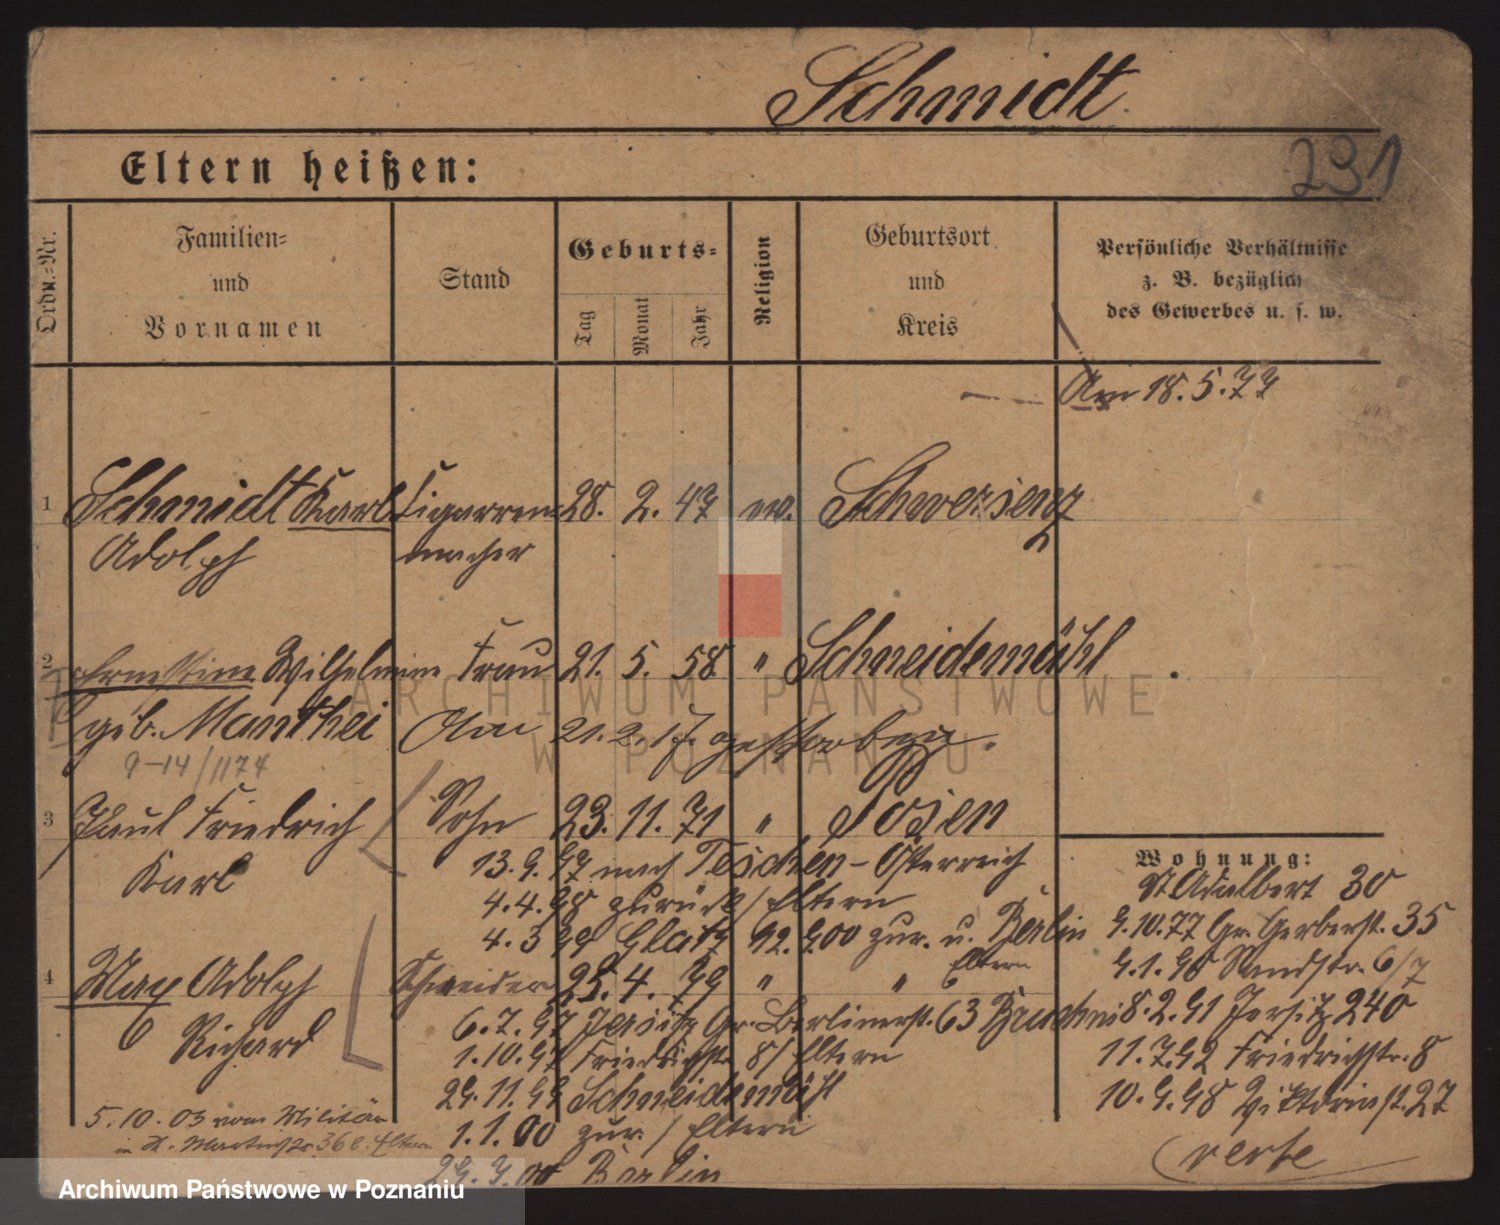 Schmidt
231
Eltern heißen:
Ordn.=Nr.
Familien=
und
Vornamen
Stand
Geburts=
Tag
Monat
Jahr
Religion
Geburtsort
und
Kreis
Persönliche Verhältnisse
z. B. bezüglich
des Gewerbes u. s. w.
Am 18.5.77
1 Schmidt Karl Cigarren 28. 2. 47 ev. Schwersenz
Adolph macher
2 Ernestine Wilhelmine Frau 21. 5. 58 " Schneidemühl
geb. Manthei Am 21.2.17. gestorben.
9-14/1174
3 Paul Friedrich Sohn 23. 11. 71 " Posen
Karl
13.9.97 nach Teschen - Österreich
4.4.98 zurück / Eltern
4.3 99 Glatz 12.9.00 zur. u. Berlin
4 Max Adolph Schneider 25. 4. 79 " "
Richard
Eltern
6.7.97 Jersitz Gr. Berlinerst. 63
1.10.97 Friedrichstr. 8 / Eltern
29.11.99 Schneidemühl
1.1.00 zur. / Eltern
Berlin
5.10.03 vom Militär
in St. Martinstr. 36 b. Eltern
Wohnung:
St Adalbert 30
9.10.77 Gr. Gerberst. 35
9.1.90 Sandstr. 6/7
8.2.91 Jersitz 240
11.7.92 Friedrichstr. 8
10.9.98 Viktoriast. 27
verte
ARCHIWUM PAŃSTWOWE
W POZNANIU
Archiwum Państwowe w Poznaniu